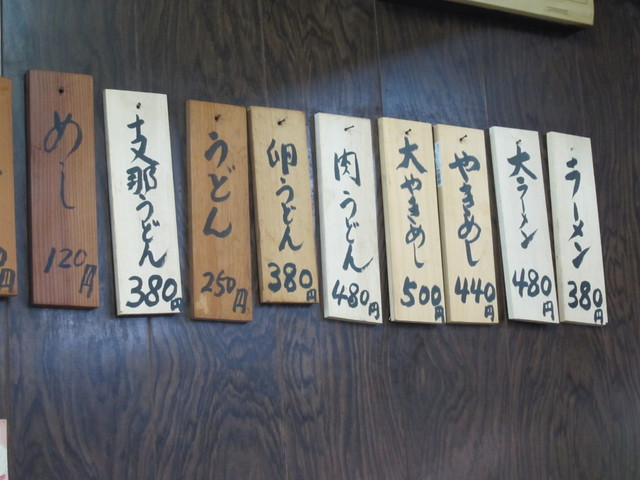 ラーメン
380円
大ラーメン
480円
やきめし
440円
大やきめし
500円
肉うどん
480円
卵うどん
380円
うどん
250円
支那うどん
380円
めし
120円
0円